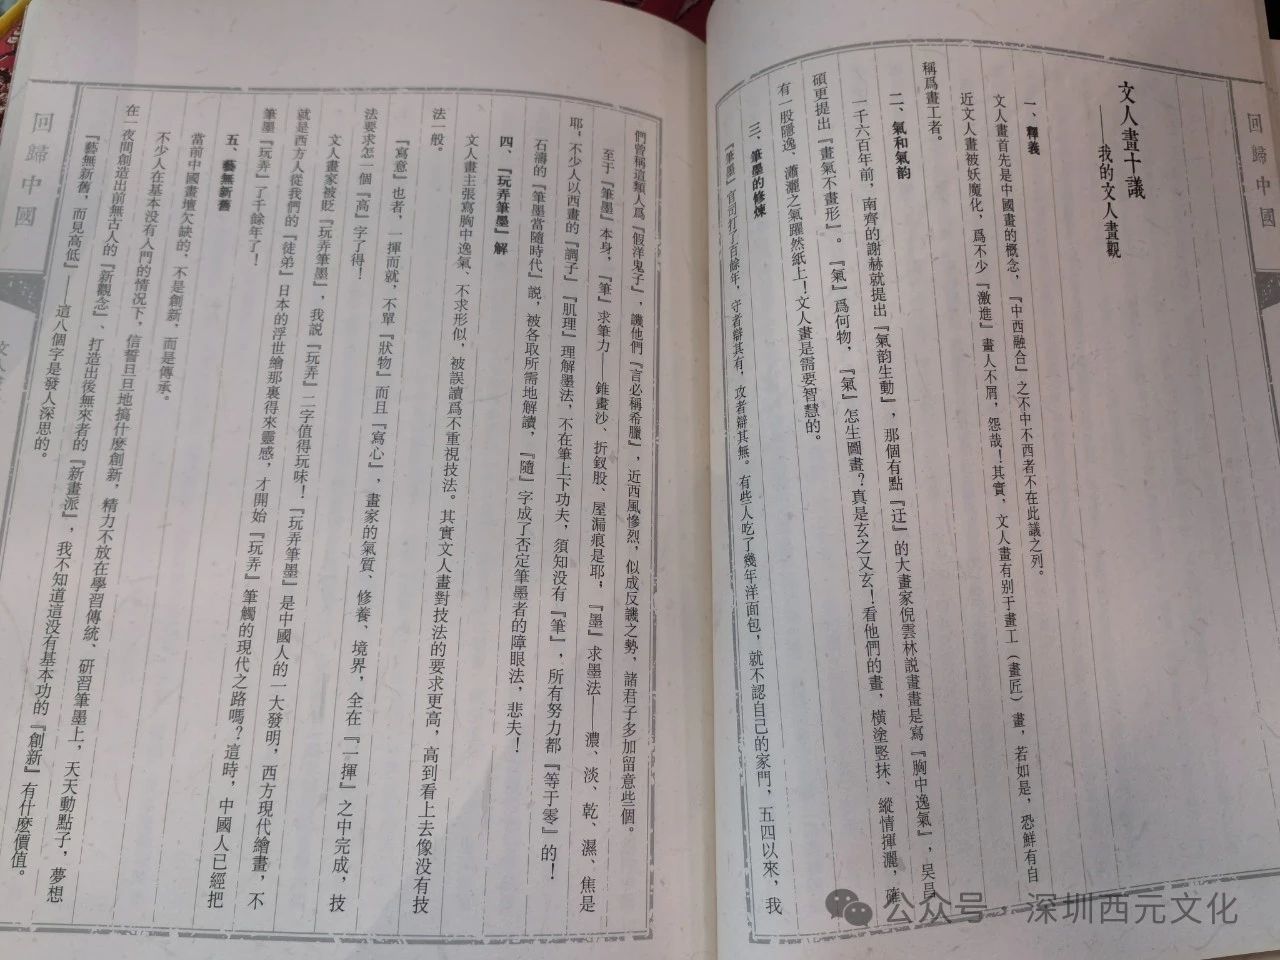 回歸中國
文人畫十議
——我的文人畫觀
一、釋義
文人畫首先是中國畫的概念，『中西融合』之不中不西者不在此議之列。
近文人畫被妖魔化，爲不少『激進』畫人不屑，怨哉！其實，文人畫有别于畫工（畫匠）畫，若如是，恐鮮有自
稱爲畫工者。
二、氣和氣韵
一千六百年前，南齊的謝赫就提出『氣韵生動』，那個有點『迂』的大畫家倪雲林説畫畫是寫『胸中逸氣』，吴昌
碩更提出『畫氣不畫形』。『氣』爲何物，『氣』怎生圖畫？真是玄之又玄！看他們的畫，横塗竪抹、縱情揮灑，確
有一股隱逸、瀟灑之氣躍然紙上！文人畫是需要智慧的。
三、筆墨的修煉
『筆墨』官司打了百餘年，守者辯其有，攻者辯其無。有些人吃了幾年洋面包，就不認自己的家門，五四以來，我
們曾稱這類人爲『假洋鬼子』，譏他們『言必稱希臘』，近西風慘烈，似成反譏之勢，諸君子多加留意些個。
至于『筆墨』本身，『筆』求筆力——錐畫沙、折釵股、屋漏痕是耶；『墨』求墨法——濃、淡、乾、濕、焦是
耶，不少人以西畫的『調子』『肌理』理解墨法，不在筆上下功夫，須知没有『筆』，所有努力都『等于零』的！
石濤的『筆墨當隨時代』説，被各取所需地解讀，『隨』字成了否定筆墨者的障眼法，悲夫！
四、『玩弄筆墨』解
文人畫主張寫胸中逸氣、不求形似，被誤讀爲不重視技法。其實文人畫對技法的要求更高，高到看上去像没有技
法一般。
『寫意』也者，一揮而就，不單『狀物』而且『寫心』，畫家的氣質、修養、境界，全在『一揮』之中完成，技
法要求怎一個『高』字了得！
文人畫家被貶『玩弄筆墨』，我説『玩弄』二字值得玩味！『玩弄筆墨』是中國人的一大發明，西方現代繪畫，不
就是西方人從我們的『徒弟』日本的浮世繪那裏得來靈感，才開始『玩弄』筆觸的現代之路嗎？這時，中國人已經把
筆墨『玩弄』了千餘年了！
五、藝無新舊
當前中國畫壇欠缺的，不是創新，而是傳承。
不少人在基本没有入門的情况下，信誓旦旦地搞什麽創新，精力不放在學習傳統、研習筆墨上，天天動點子，夢想
在一夜間創造出前無古人的『新觀念』、打造出後無來者的『新畫派』，我不知道這没有基本功的『創新』有什麽價值。
『藝無新舊，而見高低』——這八個字是發人深思的。
回歸中國
公众号·深圳西元文化